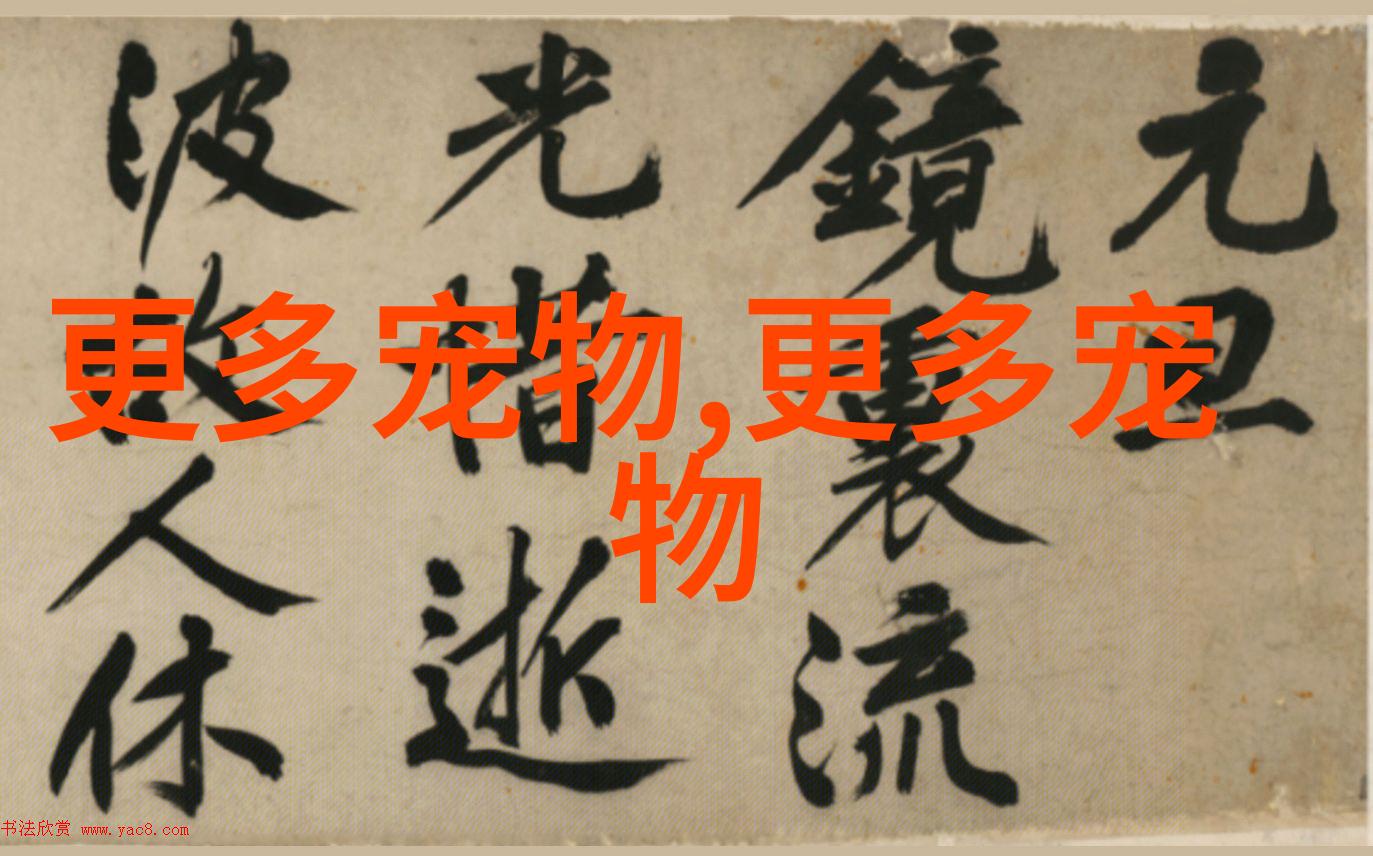 更多宠物,更多宠
物
元旦
鏡裏流
光惜逝
波故人休
书法欣赏 www.yac8.com